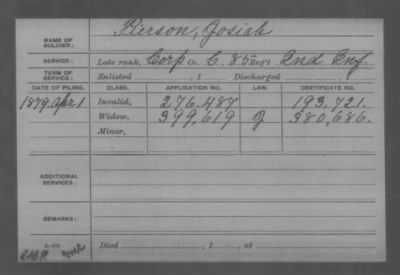 NAME OF SOLDIER: Pierson, Josiah
SERVICE: Late rank, Corp Co. C. 85 Reg't Ind Inf.
TERM OF SERVICE: Enlisted , 1 Discharged , 1
DATE OF FILING. CLASS. APPLICATION NO. LAW. CERTIFICATE NO.
1879. Apr 1 Invalid, 276.487 193,721.
Widow, 399,619 380,686.
Minor,
ADDITIONAL SERVICES:
REMARKS:
Died , 1 , at